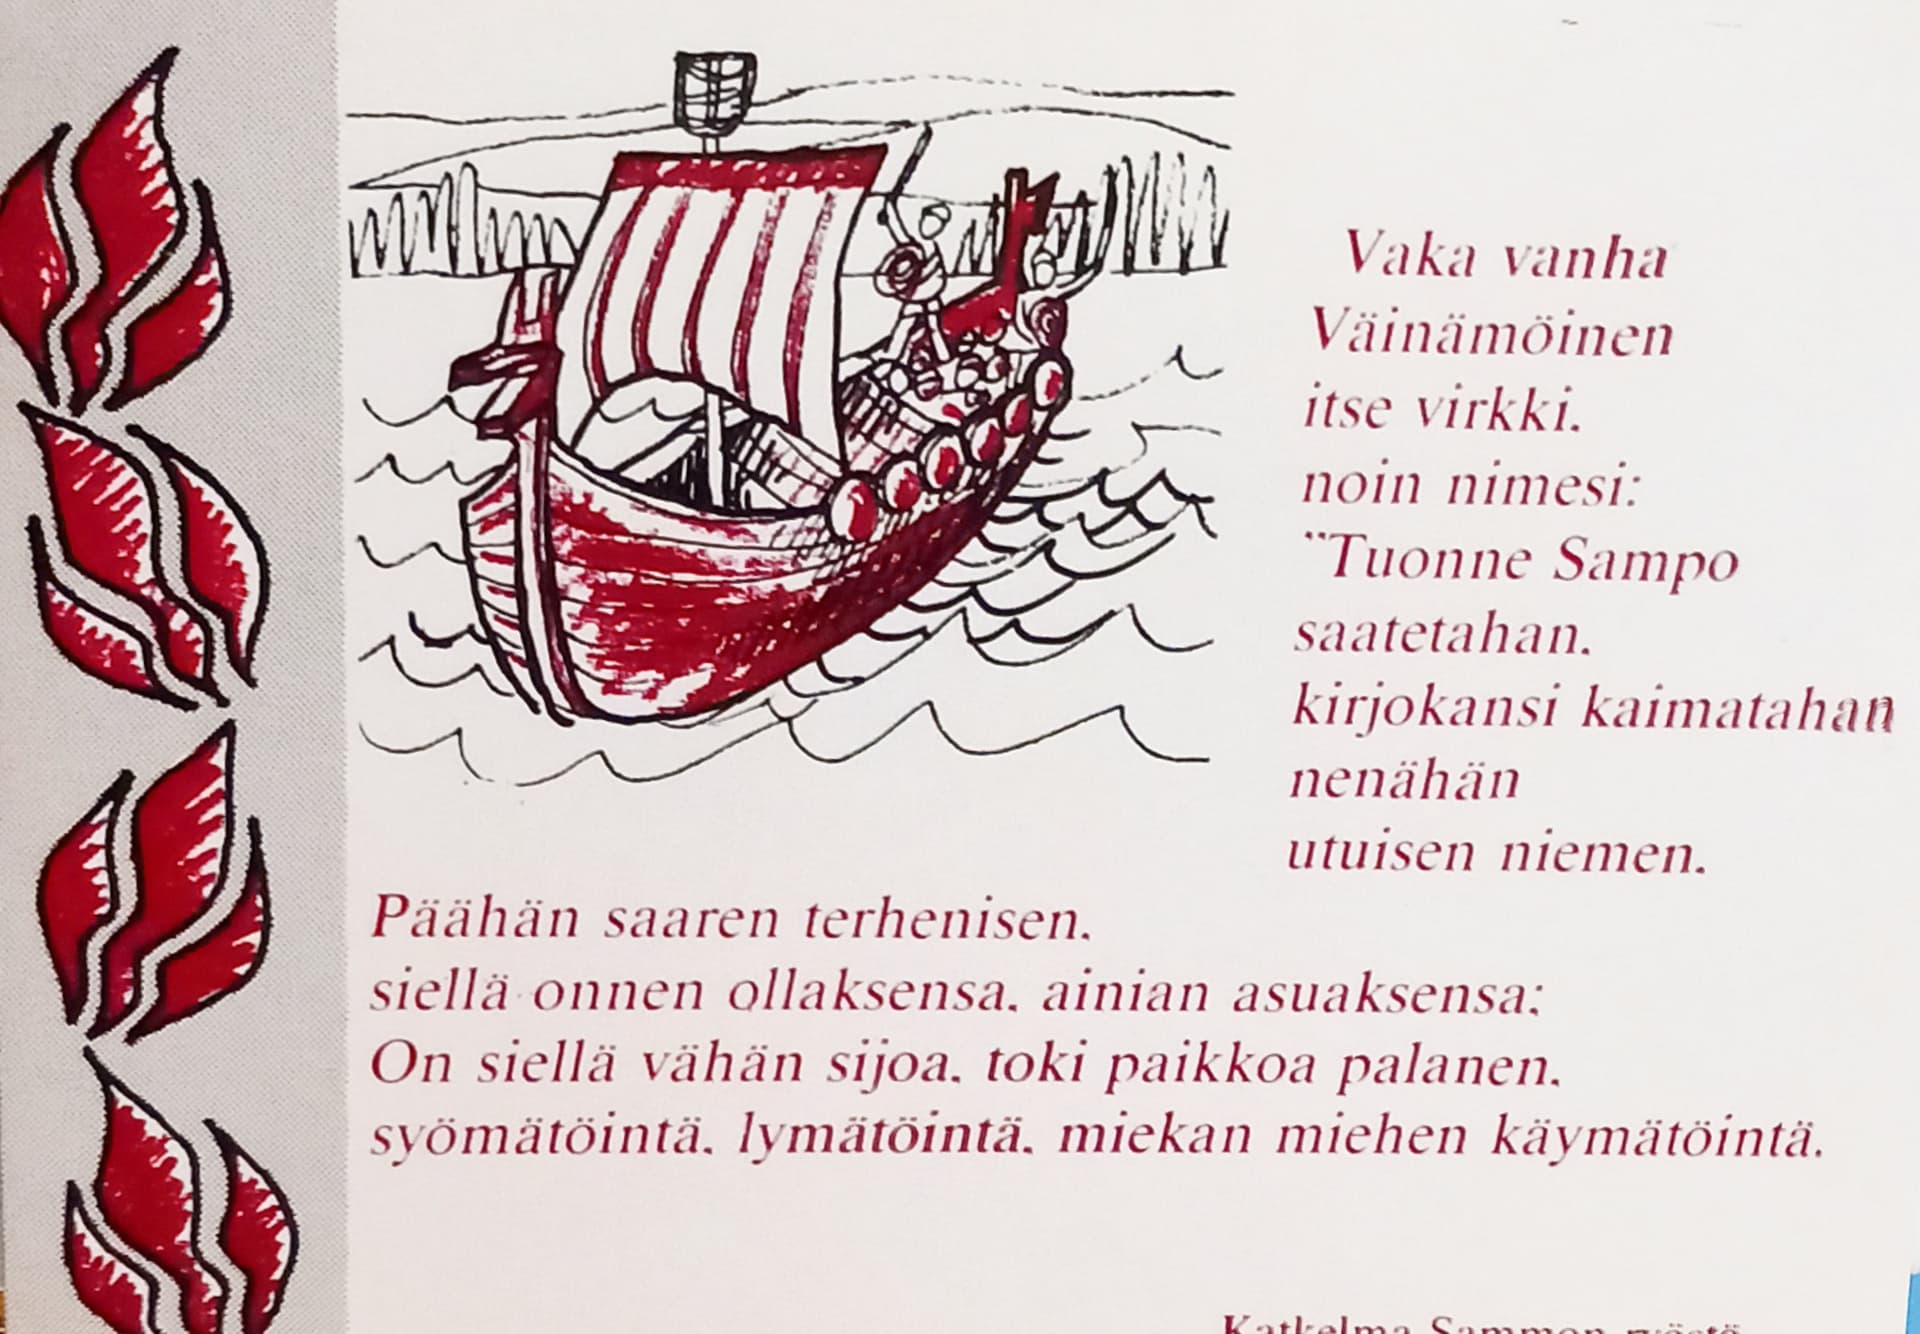 Vaka vanha
Väinämöinen
itse virkki.
noin nimesi:
"Tuonne Sampo
saatetahan.
kirjokansi kaimatahan
nenähän
utuisen niemen.
Päähän saaren terhenisen.
siellä onnen ollaksensa. ainian asuaksensa:
On siellä vähän sijoa. toki paikkoa palanen.
syömätöintä. lymätöintä. miekan miehen käymätöintä.
Katkelma Sammon ryöstö